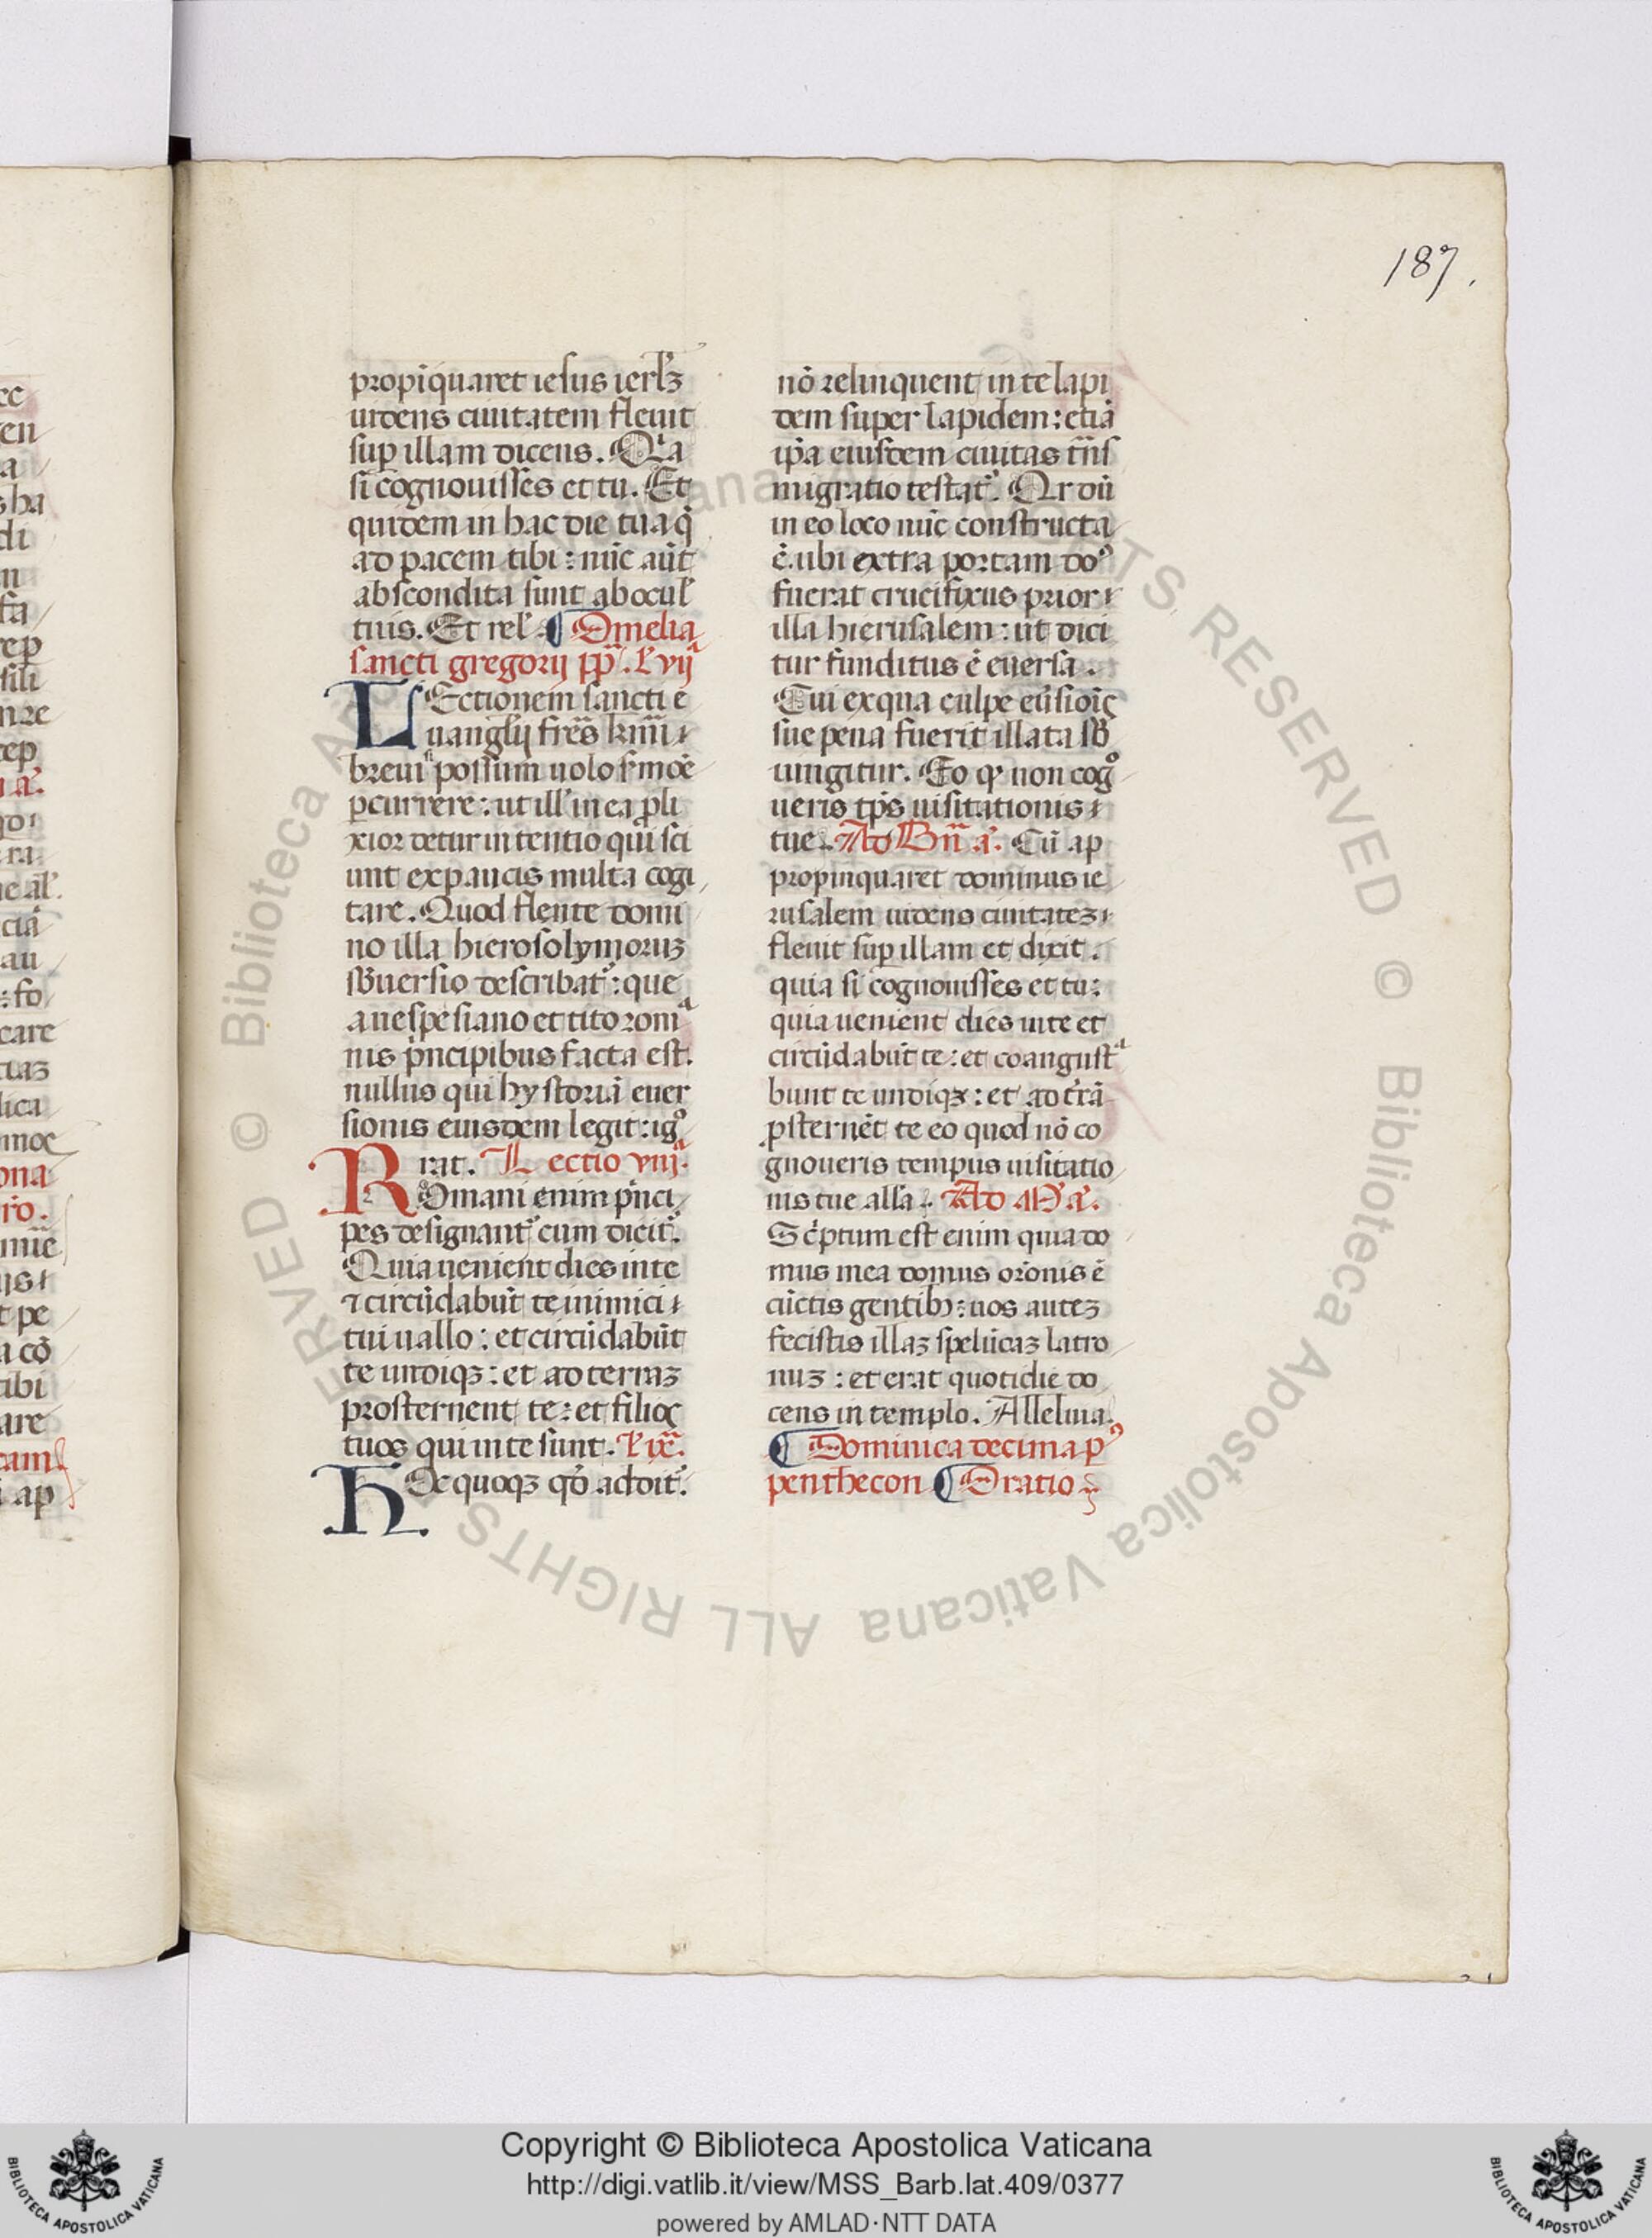 187.
propīquaret iesus ierl'ꝫ
uidens ciuitatem fleuit
suꝑ illam dicens. Qꝛa
si cognouisses et tu. Et
quidem in hac die tua q̄
ad pacem tibi: nūc aūt
abscondita sunt ab ocul'
tuis. Et rel'. Omelia
sancti gregorij pp̄. l'. vij
LEctionem sancti e
uanglij fr̄es kr̄mi
breui possum uolo s̓mōe
ꝑcurrere: ut ill' in ea ꝓli
xior detur intentio qui sci
unt ex paucis multa cogi
tare. Quod flente domi
no illa hierosolymoruꝫ
sb̄uersio describat᷑: que
a uespesiano et tito romᵃ
nis p̄ncipibus facta est.
nullus qui hystoriā euer
sionis eiusdem legit: igº
rat. Lectio viijᵃ.
ROmani enim p̄nci
pes designant᷑ cum dicit᷑.
Quia uenient dies in te
⁊ circūdabūt te inimici
tui uallo: et circūdabūt
te undiqꝫ: et ad terraꝫ
prosternent te: et filios
tuos qui in te sunt. l'. ix.
HOc quoqꝫ qd̄ addit᷑.
nō relinquent in te lapi
dem super lapidem: etiā
ip̄a eiusdem ciuitas trn̄s
migratio testat᷑. Qꝛ dū
in eo loco nūc constructa
ē. ubi extra portam do⁹
fuerat crucifixus prior
illa hierusalem: ut dici
tur funditus ē euersa.
Cui ex qua culpe eūsiōis
sue pena fuerit illata sb̄
iungitur. Eo ꝙ non cogº
ueris tp̄s uisitationis
tue. Ad Bn̄ a. Cū ap
propinquaret dominus ie
rusalem uidens ciuitateꝫ
fleuit suꝑ illam et dixit.
quia si cognouisses et tu:
quia uenient dies in te et
circūdabūt te: et coangustᵃ
bunt te undiqꝫ: et ad t̄rā
ꝓsternēt te eo quod nō co
gnoueris tempus uisitatio
nis tue all'a. Ad M̄ a.
Sc̄ptum est enim quia do
mus mea domus or̄onis ē
cūctis gentibꝫ: uos auteꝫ
fecistis illaꝫ spelūcaꝫ latro
nuꝫ: et erat quotidie do
cens in templo. Alleluia.
Dominica decima p⁹
penthecon Oratio
Copyright © Biblioteca Apostolica Vaticana
http://digi.vatlib.it/view/MSS_Barb.lat.409/0377
powered by AMLAD·NTT DATA